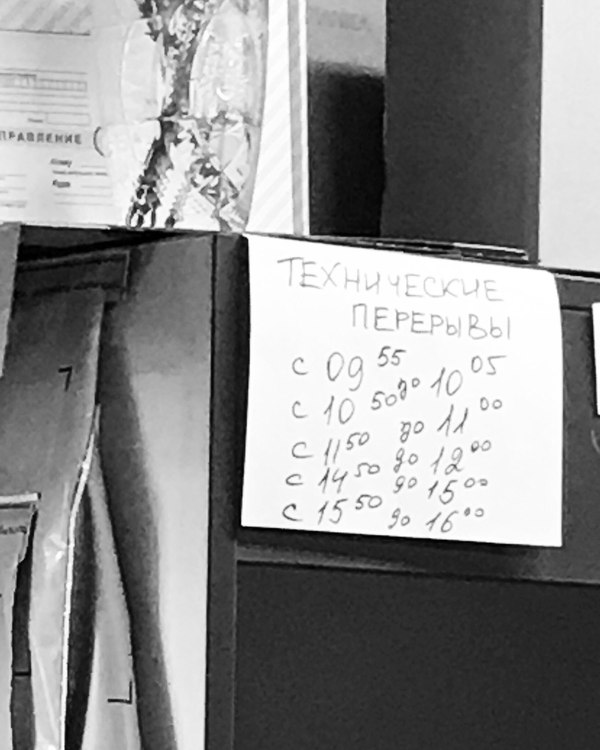 ПРАВЛЕНИЕ
ТЕХНИЧЕСКИЕ
ПЕРЕРЫВЫ
с 09 55 до 10 05
с 10 50 до 11 00
с 11 50 до 12 00
с 14 50 до 15 00
с 15 50 до 16 00